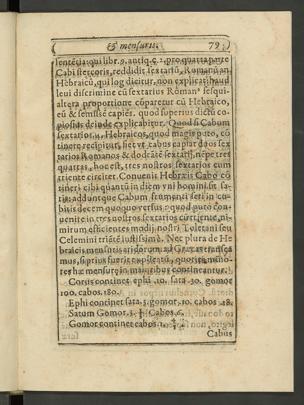 & mensuris. 79
sententia: qui libr. 9. antiq. c. 2. pro quarta parte
Cabi stercoris, reddidit sextariũ, Romanũ an
Hebraicũ, qui log dicitur, non explicat: haud
leui discrimine cũ sextarius Romanº sesqui-
altera proportione cõparetur cũ Hebraico,
eũ & semissẽ capiẽs. quod superius dictũ co-
piosius deinde explicabitur. Quod si Cabum
sextarios 4. Hebraicos, quod magis puto, cõ
tinere recipitur, fiet vt cabus capiat duos sex
tarios Romanos & dodrãtẽ sextarij, nẽpe tres
quartas, hoc est, tres nostros sextarios cum
triente circiter. Conuenit Hebræis Cabo cõ
tineri cibi quantũ in diem vni homini sit sa-
tis: adduntque Cabum frumenti seri in cu-
bitis decem quoquo versus. quod puto con-
uenire in tres nostros sextarios cũ triente, ni-
mirum efficientes modij nostri Toletani seu
Celemini triẽtẽ iustissimè. Nec plura de He-
braicis mensuris aridorum ad Græcas transea
mus, si prius fuerit expositum, quoties mino-
res hæ mensuræ in maioribus contineantur.
Corus continet ephi. 10. sata. 30. gomor
100. cabos. 180.
Ephi continet sata. 3. gomor. 10. cabos. 18.
Satum Gomor. 3. ⅓ Cabos. 6.
Gomor continet cabos. 1.
Cabus